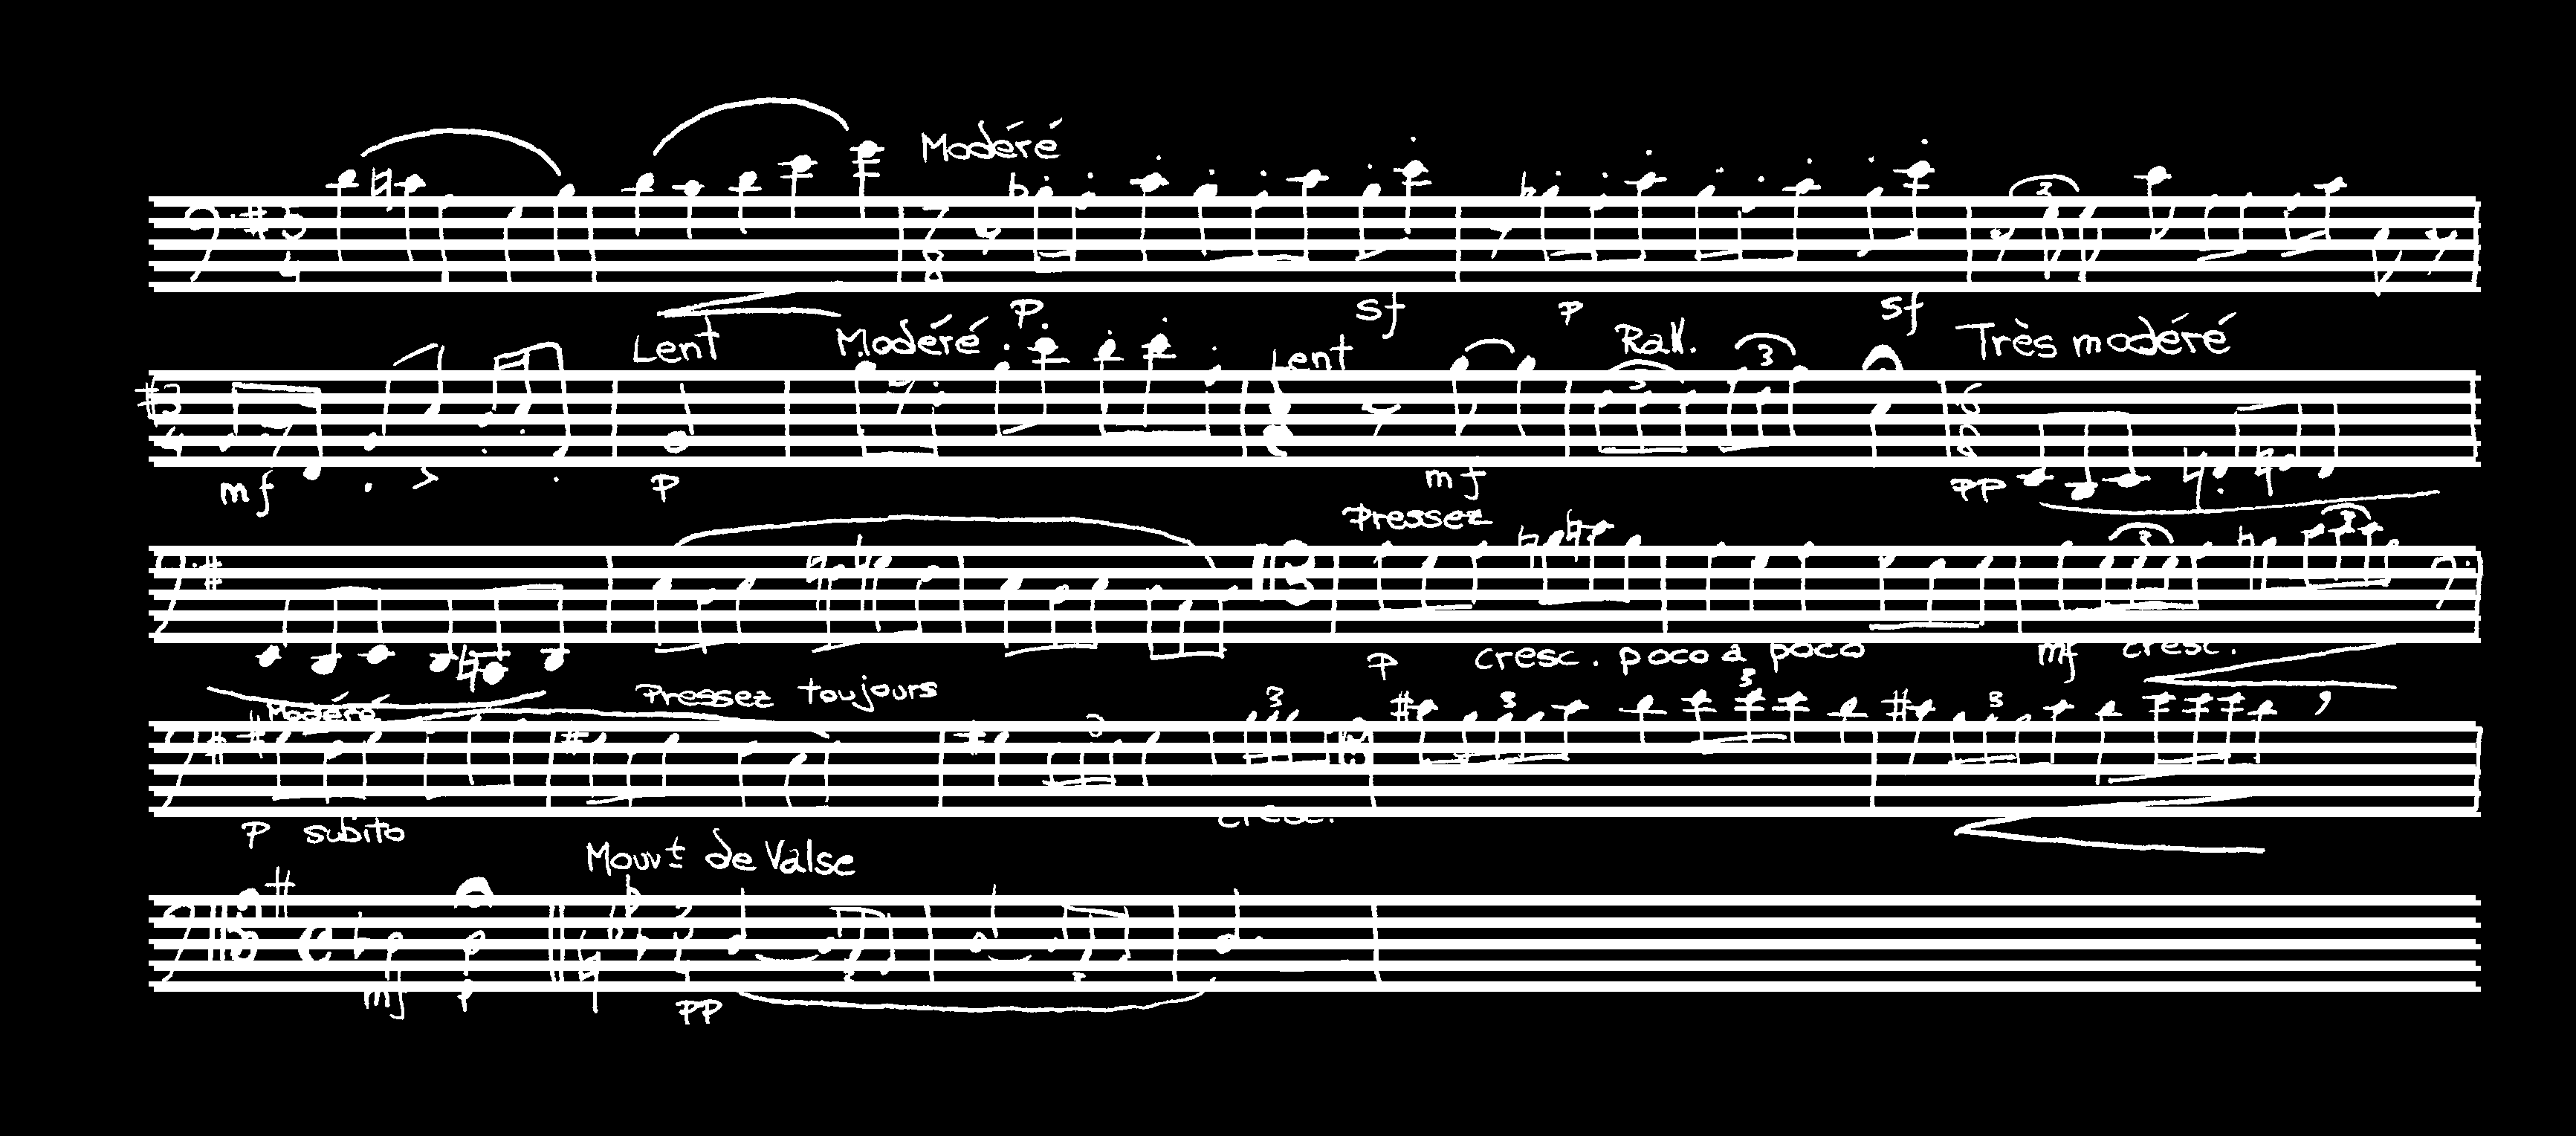 Modéré
3
p sf p sf
Lent Modéré Lent Rall. Très modéré
3 3
mf p mf pp
Pressez
3 3
p cresc. poco a poco mf cresc.
Modéré Pressez toujours
3 3 3 3 3
p subito cresc.
Mouvt de Valse
mf p pp